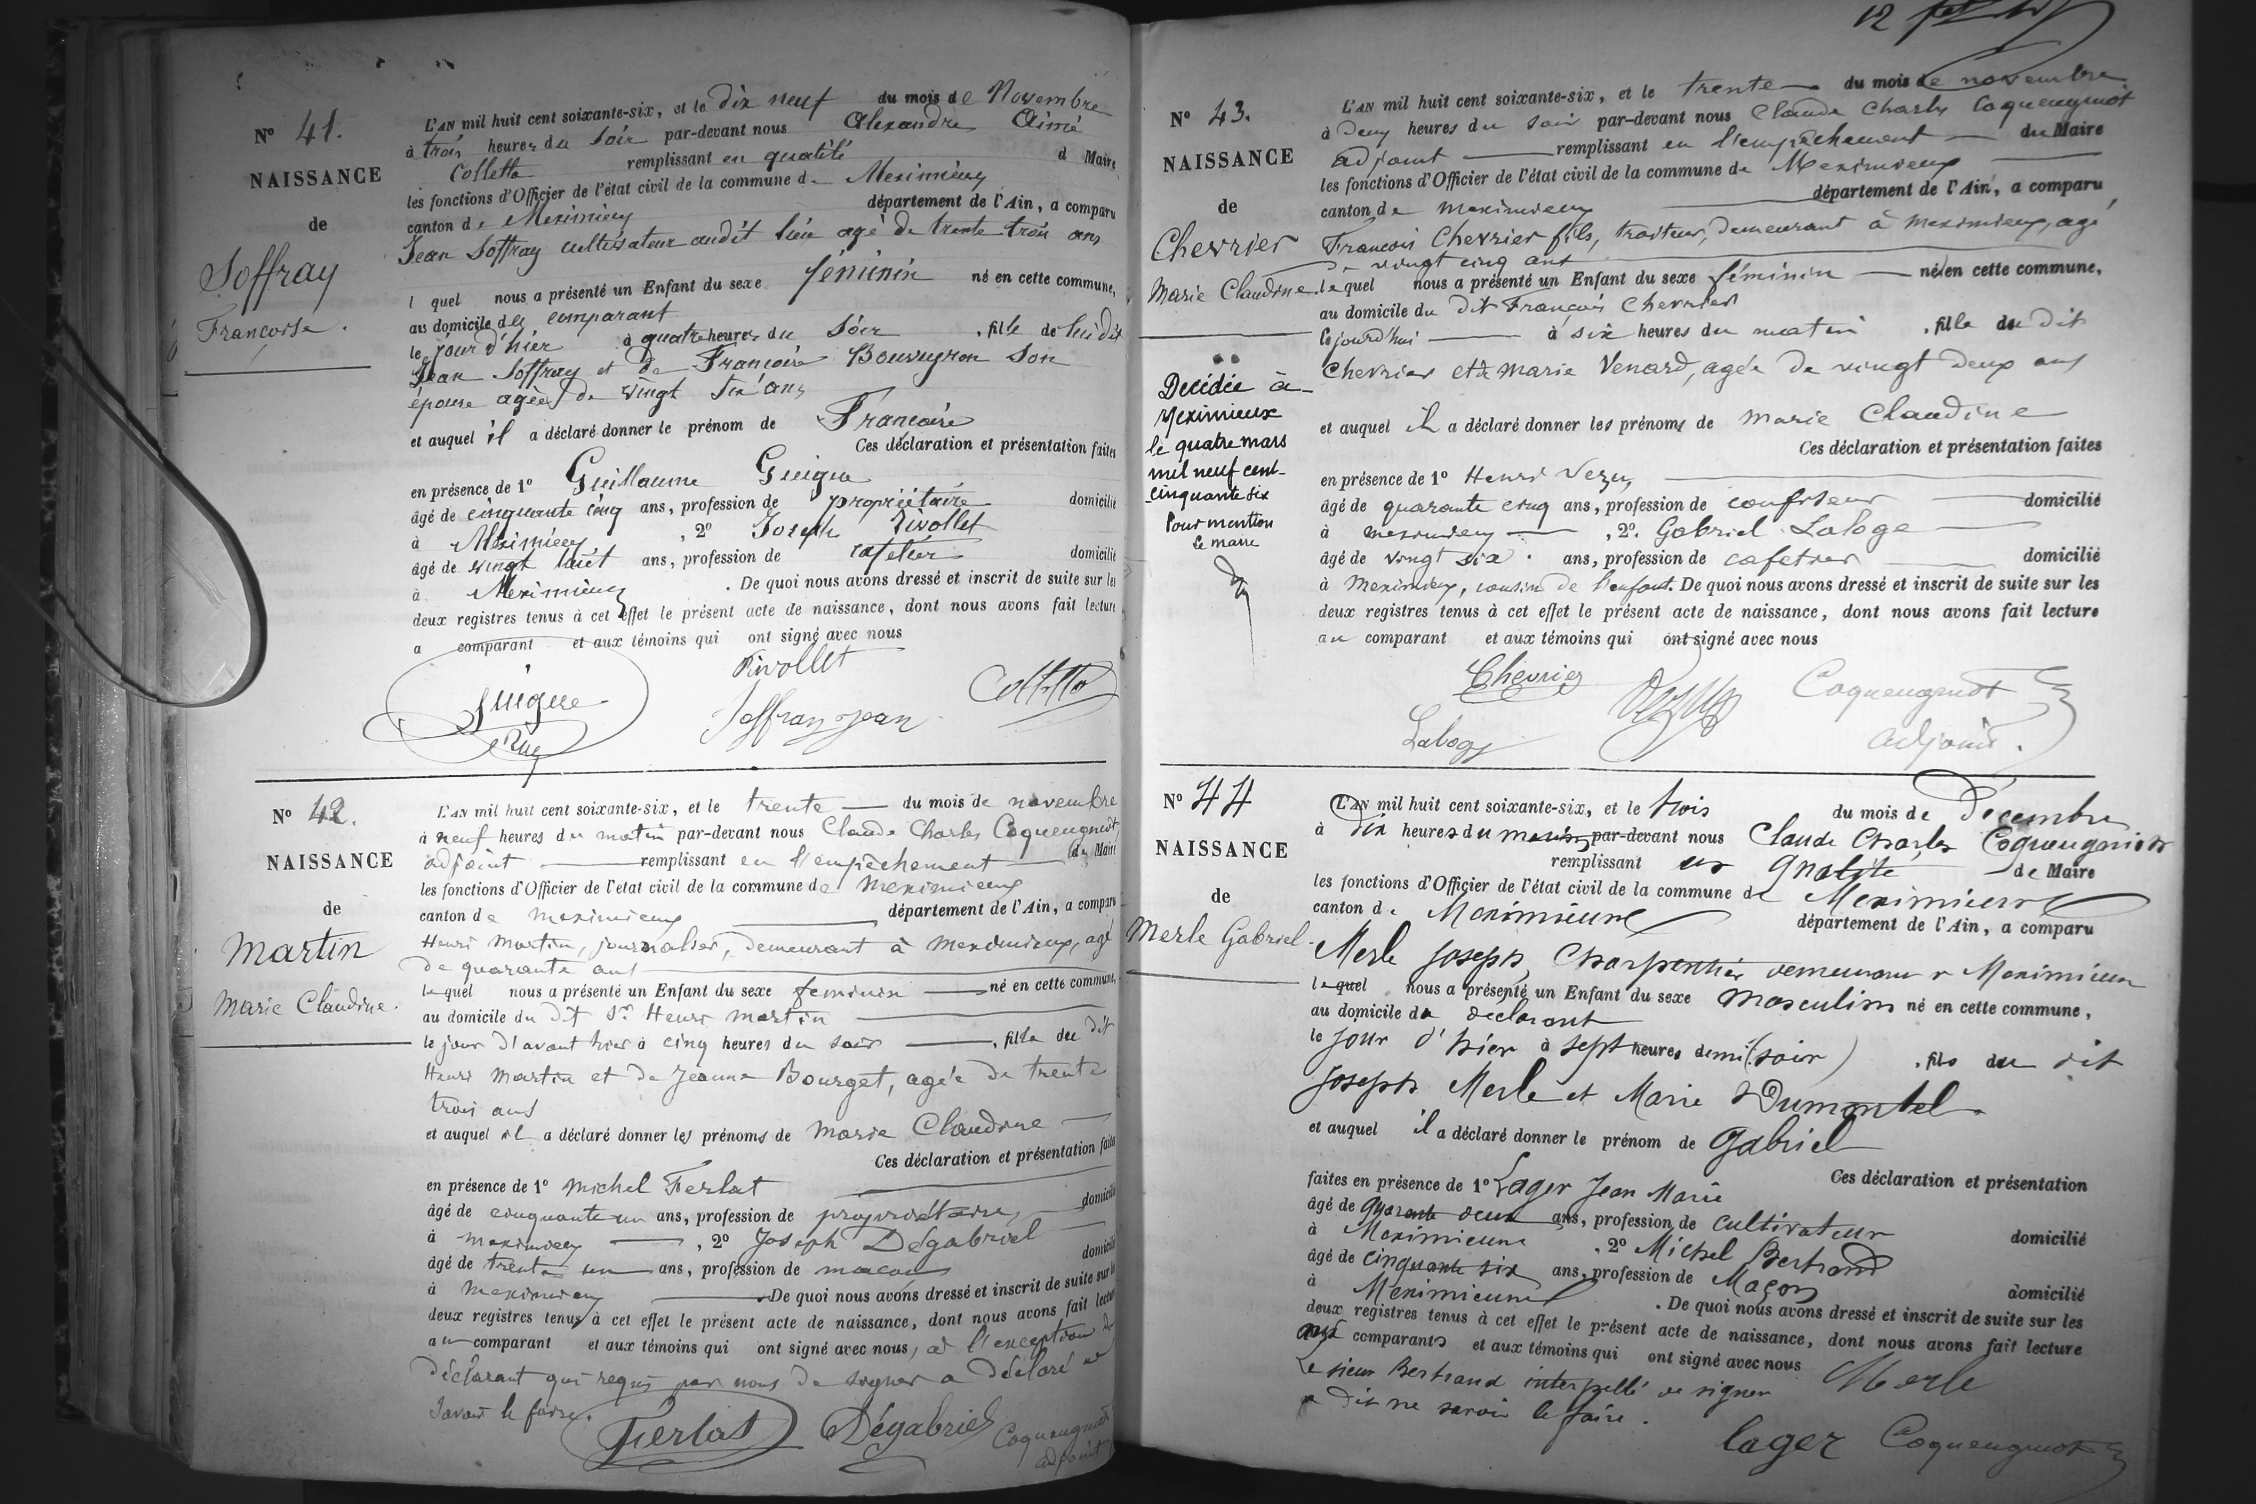 N° 41.
NAISSANCE
de
Soffray
Françoise.
L'AN mil huit cent soixante-six, et le dix neuf du mois de Novembre
à trois heures du soir par-devant nous Alexandre Aimé
Colletta remplissant en qualité d Maire
les fonctions d'Officier de l'état civil de la commune de Meximieux
canton de Meximieux département de l'Ain, a comparu
Jean Soffray cultivateur audit lieu agé de trente trois ans
l quel nous a présenté un Enfant du sexe féminin né en cette commune,
au domicile du comparant
le jour d'hier à quatre heures du soir, fille de lui dit
Jean Soffray et de Françoise Bouveyron son
épouse agée de vingt six ans
et auquel il a déclaré donner le prénom de Françoise
Ces déclaration et présentation faites
en présence de 1° Guillaume Guigue
âgé de cinquante cinq ans, profession de propriétaire domicilié
à Meximieux, 2° Joseph Rivollet
âgé de vingt huit ans, profession de cafetier domicilié
à Meximieux. De quoi nous avons dressé et inscrit de suite sur les
deux registres tenus à cet effet le présent acte de naissance, dont nous avons fait lecture
a comparant et aux témoins qui ont signé avec nous
Rivollet
guigue
Soffray Jean
Colletta
N° 42.
NAISSANCE
de
Martin
Marie Claudine.
L'AN mil huit cent soixante-six, et le trente du mois de novembre
à neuf heures du matin par-devant nous Claude Charles Coqueugniot
adjoint remplissant en l'empêchement du Maire
les fonctions d'Officier de l'état civil de la commune de Meximieux
canton de meximieux département de l'Ain, a comparu
Henri Martin, journalier, demeurant à meximieux, agé
de quarante ans
lequel nous a présenté un Enfant du sexe feminin né en cette commune,
au domicile du dit Sr Henri Martin
le jour d'avant hier à cinq heures du soir, fille du dit
Henri Martin et de Jeanne Bourget, agée de trente
trois ans
et auquel il a déclaré donner les prénoms de Marie Claudine
Ces déclaration et présentation faites
en présence de 1° Michel Ferlat
âgé de cinquante un ans, profession de propriétaire, domicilié
à meximieux, 2° Joseph Dégabriel
âgé de trente un ans, profession de maçon domicilié
à Meximieux. De quoi nous avons dressé et inscrit de suite sur les
deux registres tenus à cet effet le présent acte de naissance, dont nous avons fait lecture
au comparant et aux témoins qui ont signé avec nous, à l'exception du
déclarant qui requis par nous de signer a déclaré ne
savoir le faire.
Ferlat Dégabriel Coqueugniot
adjoint
12
N° 43.
NAISSANCE
de
Chevrier
Marie Claudine.
Decédée à
Meximieux
le quatre mars
mil neuf cent
cinquante six
Pour mention
Le maire
L'AN mil huit cent soixante-six, et le trente du mois de novembre
à Deux heures du soir par-devant nous Claude Charles Coqueugniot
adjoint remplissant en l'empêchement du Maire
les fonctions d'Officier de l'état civil de la commune de Meximieux
canton de meximieux département de l'Ain, a comparu
François Chevrier fils, traiteur, demeurant à meximieux, agé
de vingt cinq ans
lequel nous a présenté un Enfant du sexe féminin né en cette commune,
au domicile du dit François Chevrier
cejourd'hui à six heures du matin, fille du dit
Chevrier et de Marie Venard, agée de vingt deux ans
et auquel il a déclaré donner les prénoms de Marie Claudine
Ces déclaration et présentation faites
en présence de 1° Henri Vezu
âgé de quarante cinq ans, profession de confiseur domicilié
à meximieux, 2°. Gabriel Laloge
âgé de vingt six ans, profession de cafetier domicilié
à Meximieux, cousin de l'enfant. De quoi nous avons dressé et inscrit de suite sur les
deux registres tenus à cet effet le présent acte de naissance, dont nous avons fait lecture
au comparant et aux témoins qui ont signé avec nous
Chevrier
Coqueugniot
adjoint.
N° 44
NAISSANCE
de
Merle Gabriel.
L'AN mil huit cent soixante-six, et le trois du mois de Décembre
à Dix heures du matin par-devant nous Claude Charles Coqueugniot
remplissant en qualité de Maire
les fonctions d'Officier de l'état civil de la commune de Meximieux
canton de Meximieux département de l'Ain, a comparu
Merle Joseph Charpentier demeurant a Meximieux
lequel nous a présenté un Enfant du sexe masculin né en cette commune,
au domicile du declarant
le jour d'hier à sept heures demi (soir), fils du dit
Joseph Merle et Marie Dumontel
et auquel il a déclaré donner le prénom de Gabriel
Ces déclaration et présentation
faites en présence de 1° Lager Jean Marie
âgé de quarante deux ans, profession de cultivateur domicilié
à Meximieux, 2° Michel Bertrand
âgé de cinquante six ans, profession de Maçon domicilié
à Meximieux. De quoi nous avons dressé et inscrit de suite sur les
deux registres tenus à cet effet le présent acte de naissance, dont nous avons fait lecture
aux comparants et aux témoins qui ont signé avec nous
Le sieur Bertrand interpellé de signer
a dit ne savoir le faire.
Merle
lager Coqueugniot